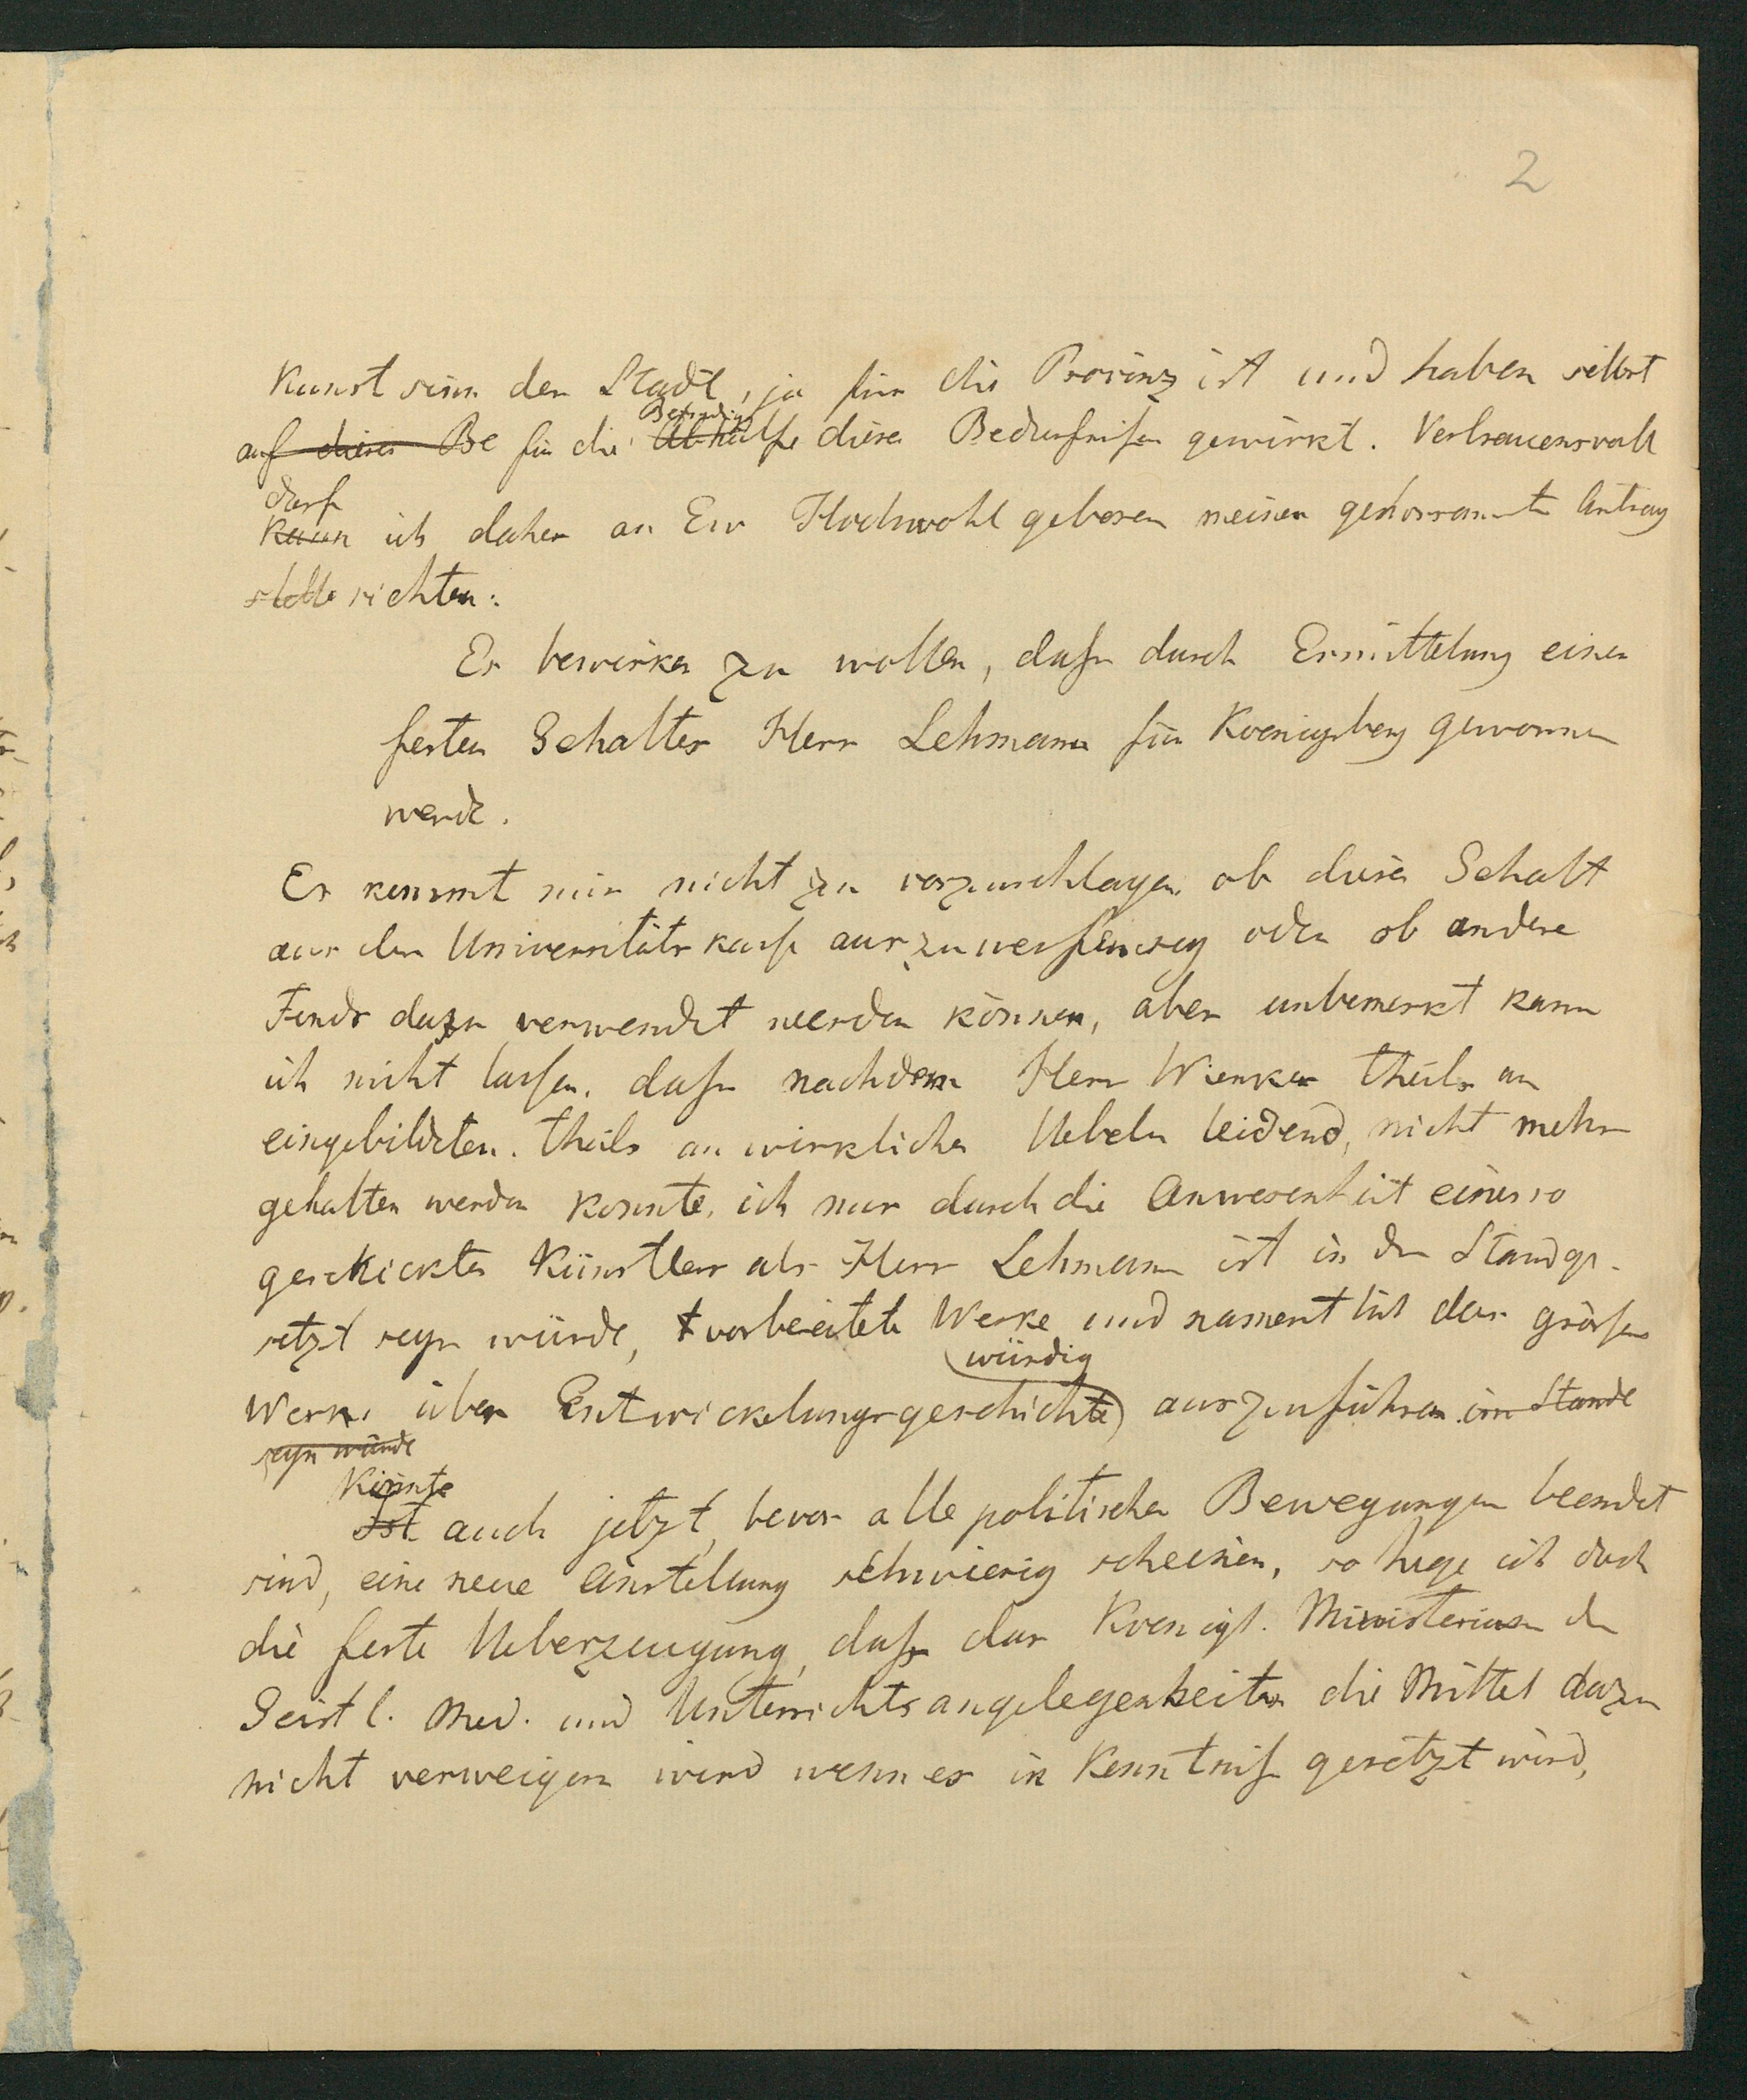 2
Kunstsinn der Stadt, ja für die Provinz ist und haben selbst
auf dieses Be für die Abhülfe dieses Bedürfnisses gewirkt. Vertrauensvoll
darf
kann ich daher an Ew Hochwohlgeboren meinen gehorsamsten Antrag
stelle richten:
Es bewirken zu wollen, dass durch Ermittelung eines
festen Gehaltes Herr Lehmann für Koenigsberg gewonnen
werde.
Es kommt mir nicht zu vorzuschlagen ob dieser Gehalt
aus der Universitätskasse auszuwerfen sey oder ob andere
Fonds dazu verwendet werden können, aber unbemerkt kann
ich nicht lassen, dass nachdem Herr Wienker theils an
eingebildeten, theils an wirklichen Uebeln leidend, nicht mehr
gehalten werden konnte, ich nur durch die Anwesenheit eines so
geschickten Künstlers als Herr Lehmann ist in den Stand ge-
setzt seyn würde, vorbereitete Werke und namentlich das grössere
würdig
Werk über Entwickelungsgeschichte auszuführen im Stande
seyn würde
Könnte
Ist auch jetzt, bevor alle politischen Bewegungen beendet
sind, eine neue Anstellung schwierig scheinen, so hege ich doch
die feste Ueberzeugung, dass das Koenigl. Ministerium der
Geistl. Med. und Unterrichtsangelegenheiten die Mittel dazu
nicht verweigern wird wenn es in Kenntniss gesetzt wird,